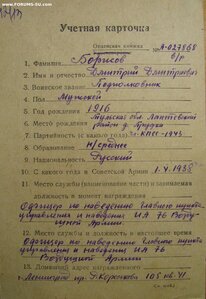 www.FORUMS-SU.com
Учетная карточка
Орденская книжка № А-027868
б/р
1. Фамилия Борисов
2. Имя и отчество Дмитрий Дмитриевич
3. Воинское звание Подполковник
4. Пол Мужской
5. Год рождения 1916
6. Место рождения Тульская обл. Лаптевский
район д.
7. Партийность (с какого года) КПСС-1945
8. Образование Н/среднее
9. Национальность Русский
10. С какого года в Советской Армии 1.4.1938
11. Место службы (наименование части) и занимаемая
должность в момент награждения
Офицер по наведению главного пункта
управления и наведения ИА 76 Возду-
шной Армии.
12. Место службы и должность в настоящее время
Офицер по наведению главного пункта
управления и наведения ИА 76
Воздушной Армии
13. Домашний адрес награжденного
г. Ленинград пр. 105 кв. 41